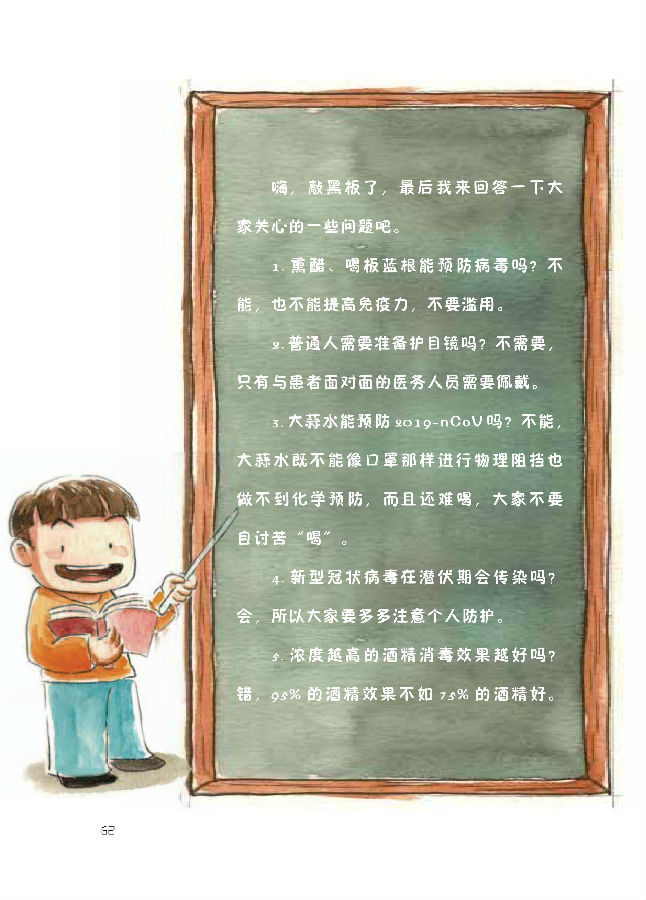 嗨，敲黑板了，最后我来回答一下大
家关心的一些问题吧。
1.熏醋、喝板蓝根能预防病毒吗？不
能，也不能提高免疫力，不要滥用。
2.普通人需要准备护目镜吗？不需要，
只有与患者面对面的医务人员需要佩戴。
3.大蒜水能预防2019-nCoV吗？不能，
大蒜水既不能像口罩那样进行物理阻挡也
做不到化学预防，而且还难喝，大家不要
自讨苦“喝”。
4.新型冠状病毒在潜伏期会传染吗？
会，所以大家要多多注意个人防护。
5.浓度越高的酒精消毒效果越好吗？
错，95%的酒精效果不如75%的酒精好。
62